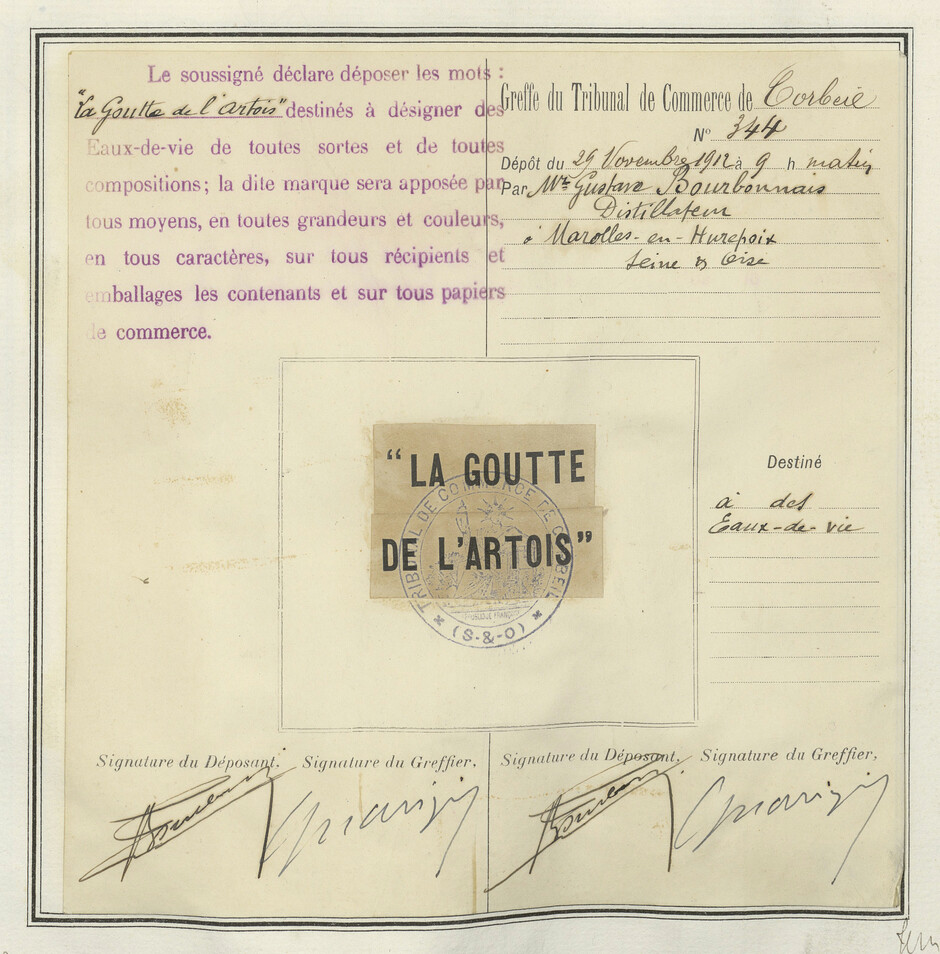 Le soussigné déclare déposer les mots :
"La Goutte de l'Artois" destinés à désigner des
Eaux-de-vie de toutes sortes et de toutes
compositions; la dite marque sera apposée par
tous moyens, en toutes grandeurs et couleurs,
en tous caractères, sur tous récipients et
emballages les contenants et sur tous papiers
de commerce.
Greffe du Tribunal de Commerce de Corbeil
N° 344
Dépôt du 29 Novembre 1912 à 9 h matin
Par Mr Gustave Bourbonnais
Distillateur
à Marolles-en-Hurepoix
Seine & Oise
"LA GOUTTE
DE L'ARTOIS"
TRIBUNAL DE COMMERCE DE CORBEIL
RÉPUBLIQUE FRANÇAISE
(S-&-O)
Destiné
à des
Eaux-de-vie
Signature du Déposant. Signature du Greffier,
Signature du Déposant, Signature du Greffier,